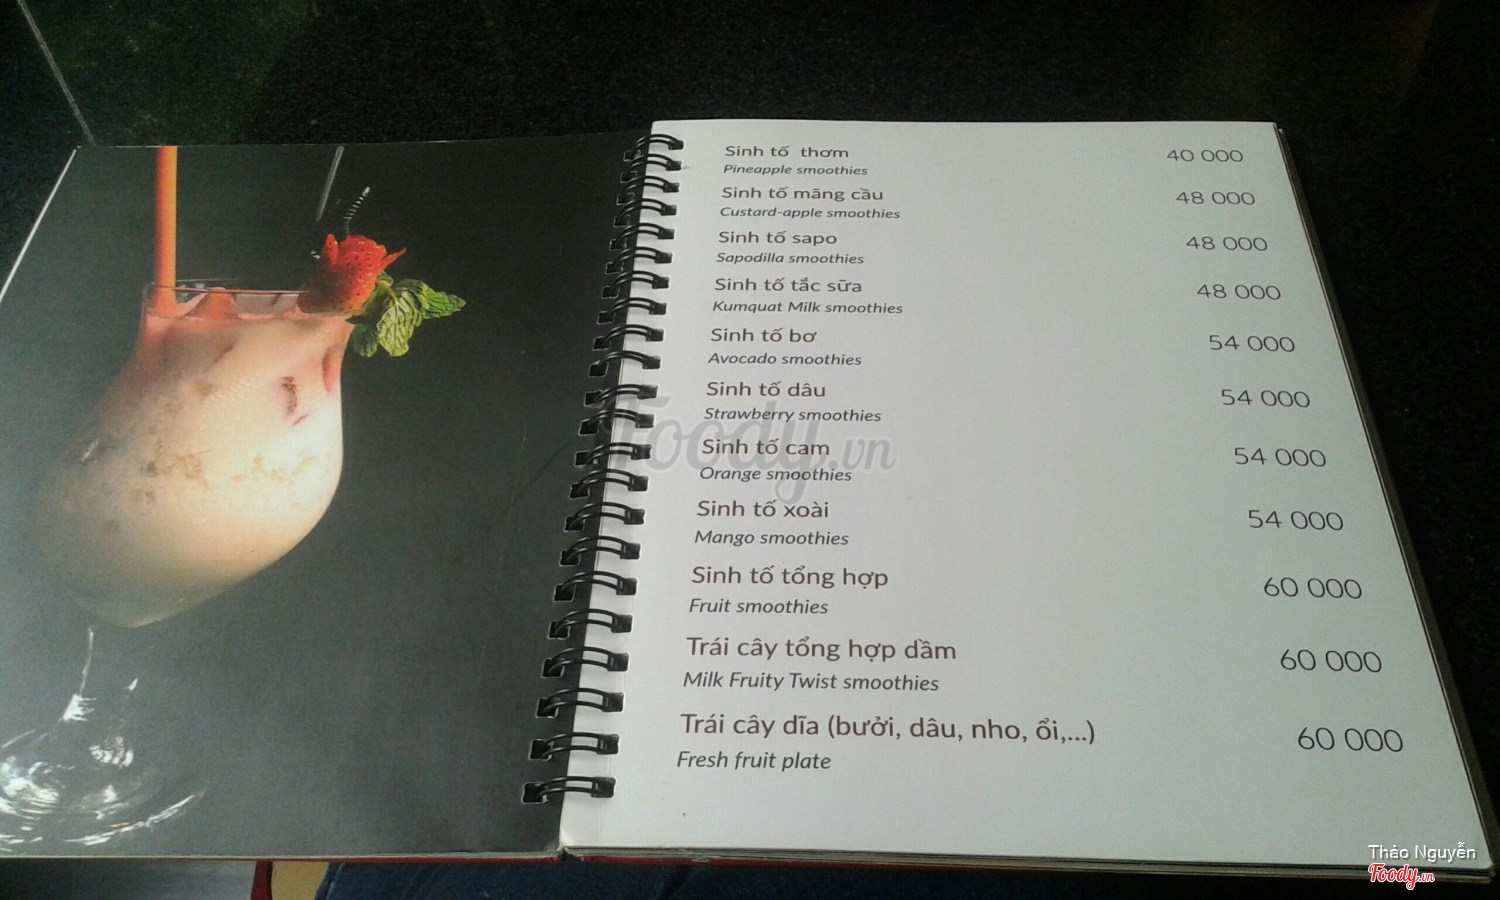 Sinh tố thơm 40 000
Pineapple smoothies
Sinh tố mãng cầu 48 000
Custard-apple smoothies
Sinh tố sapo 48 000
Sapodilla smoothies
Sinh tố tắc sữa 48 000
Kumquat Milk smoothies
Sinh tố bơ 54 000
Avocado smoothies
Sinh tố dâu 54 000
Strawberry smoothies
Foody.vn
Sinh tố cam 54 000
Orange smoothies
Sinh tố xoài 54 000
Mango smoothies
Sinh tố tổng hợp 60 000
Fruit smoothies
Trái cây tổng hợp dầm 60 000
Milk Fruity Twist smoothies
Trái cây dĩa (bưởi, dâu, nho, ổi,...) 60 000
Fresh fruit plate
Thảo Nguyễn
Foody.vn